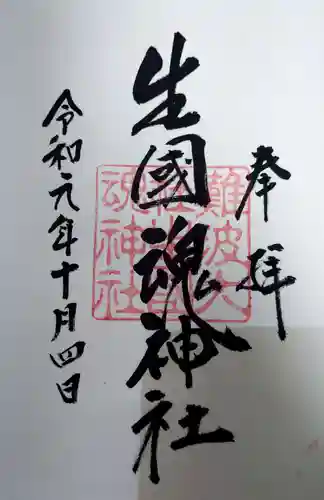 奉拝
生國魂神社
令和元年十月四日
難波大
社生國
魂神社